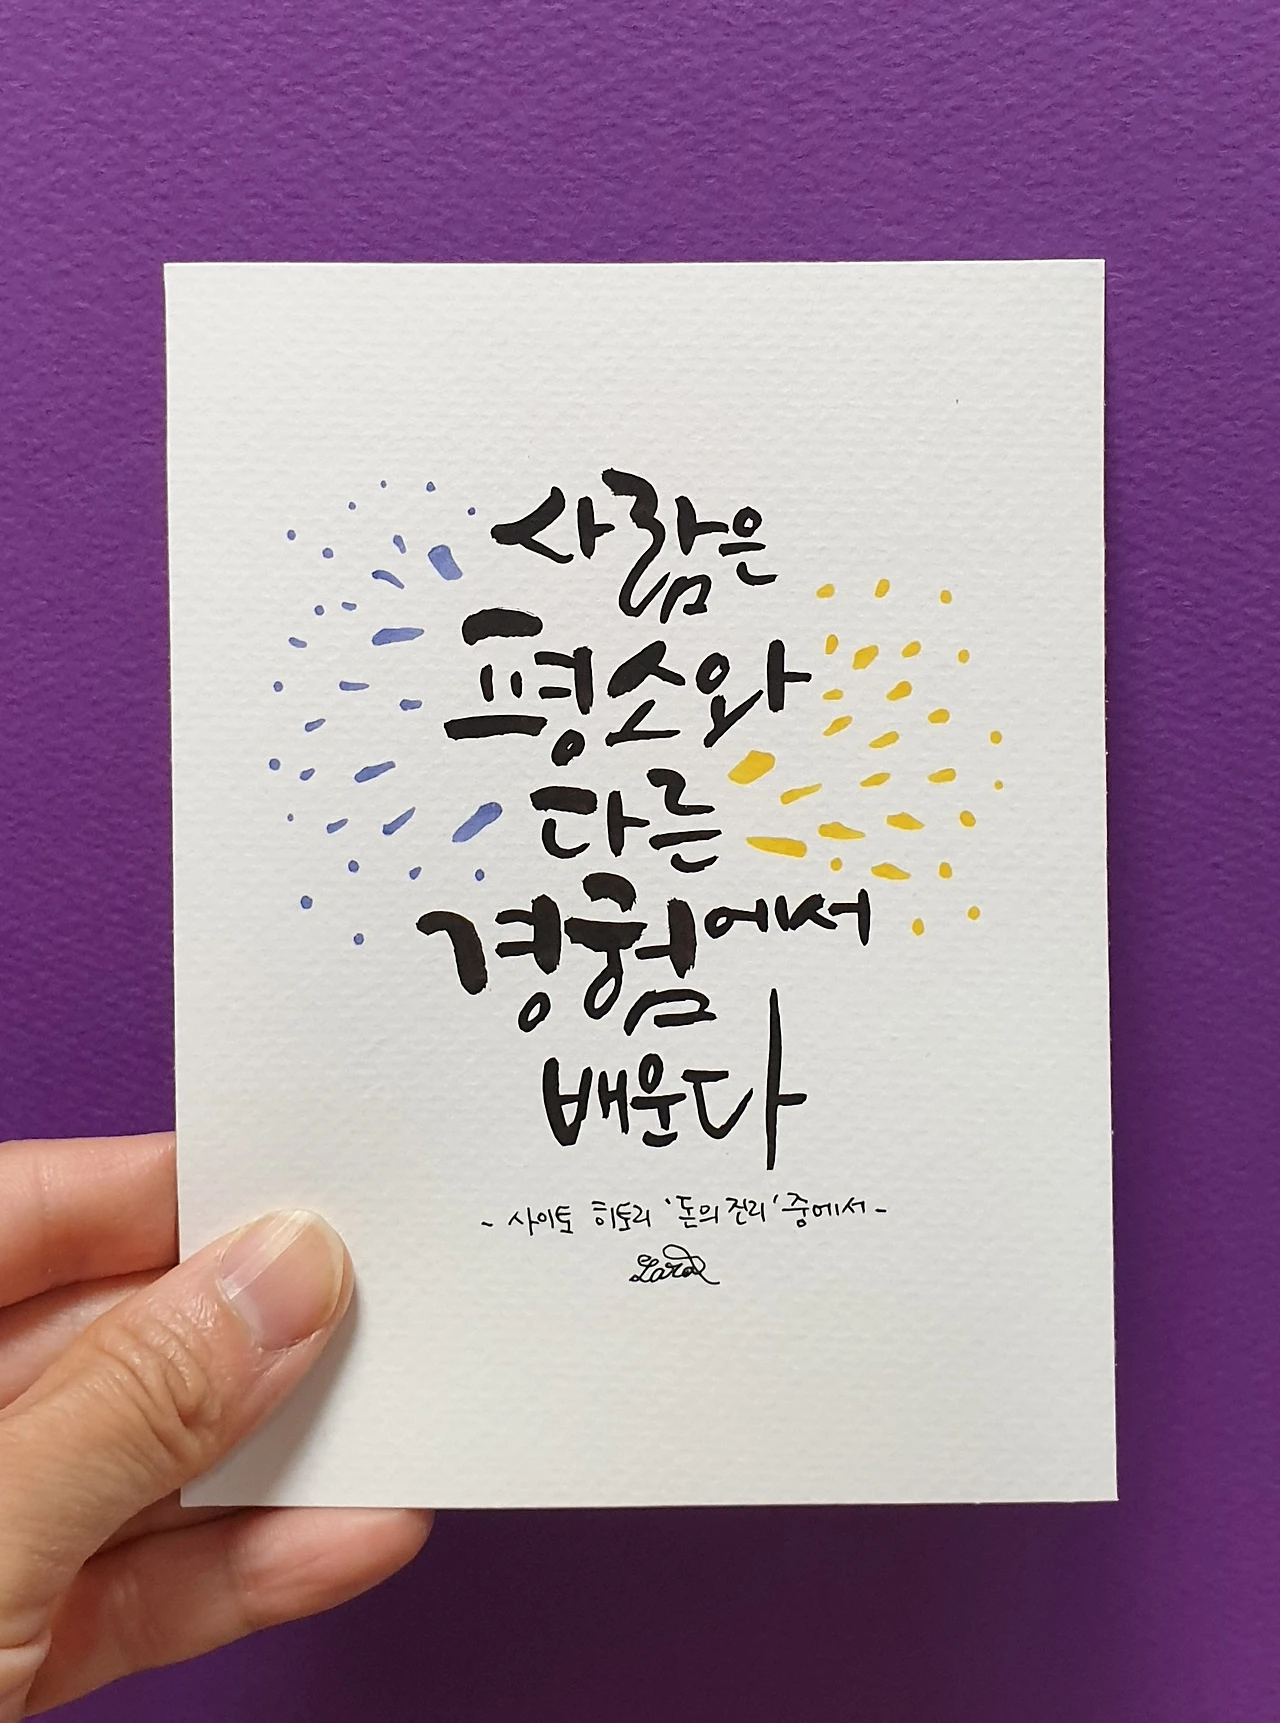 사람은
평소와
다른
경험에서
배운다
- 사이토 히토리 '돈의 진리' 중에서 -